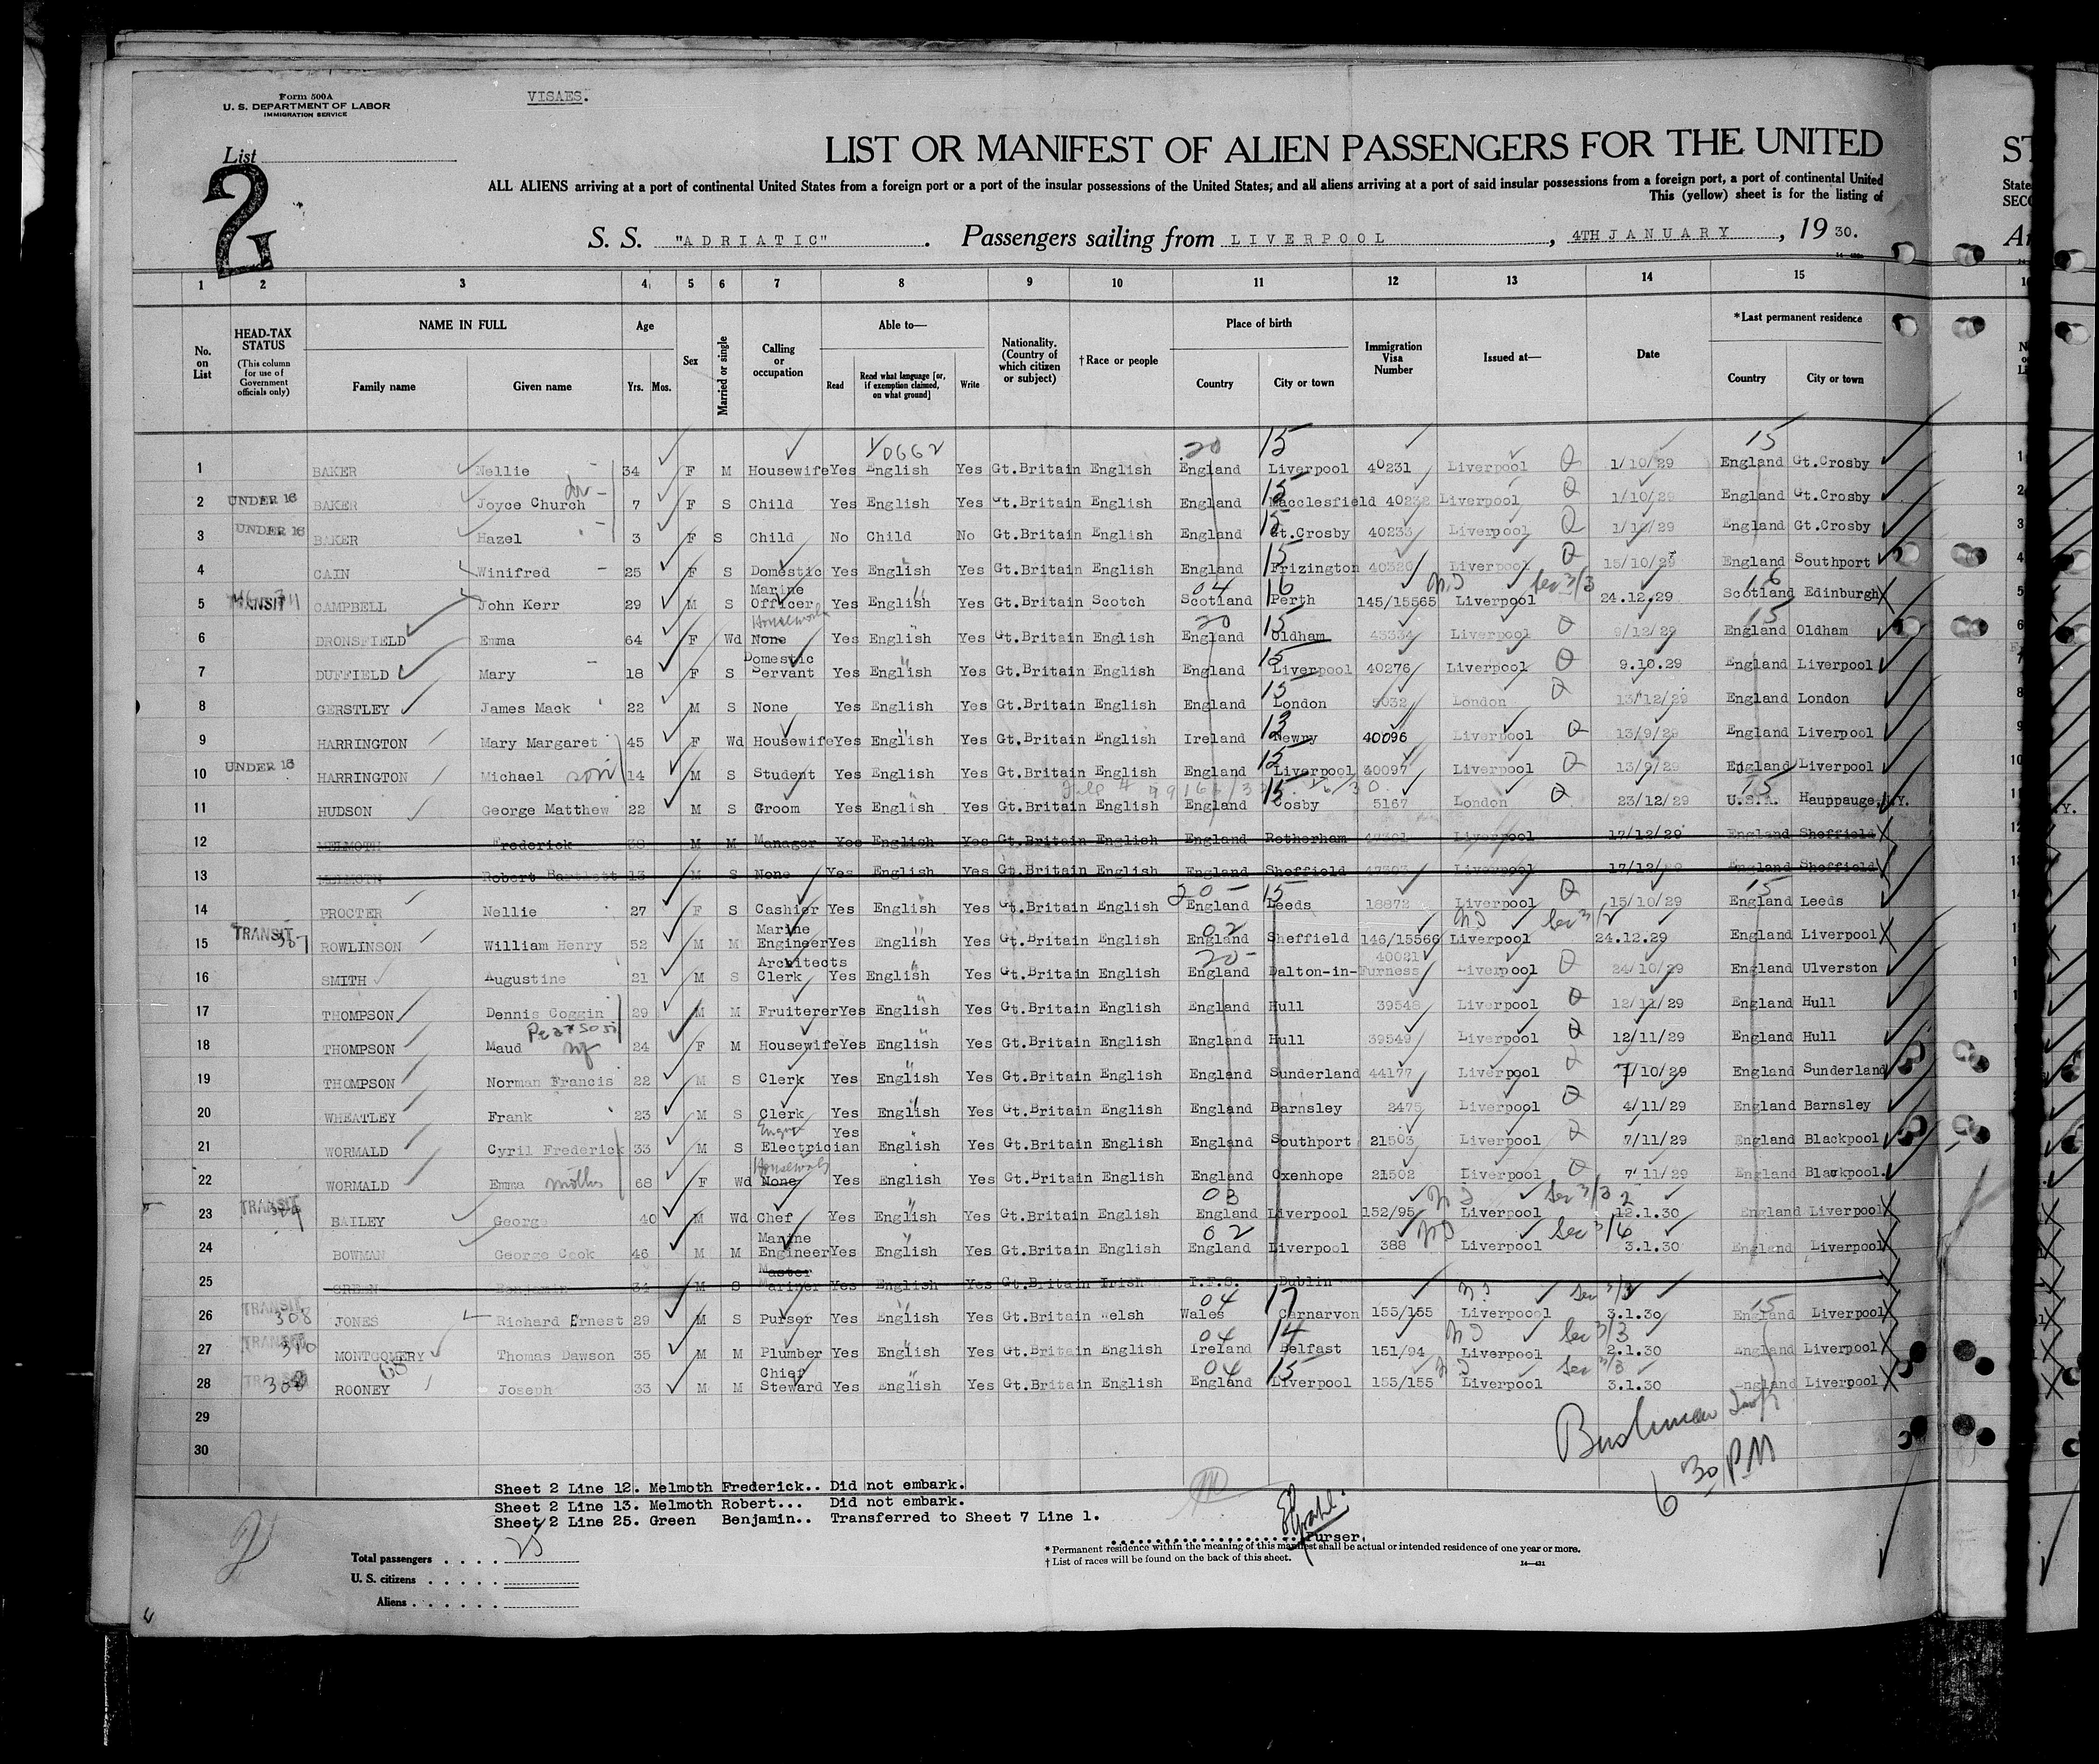 Form 500A
U. S. DEPARTMENT OF LABOR
IMMIGRATION SERVICE
VISAES.
List
2
LIST OR MANIFEST OF ALIEN PASSENGERS FOR THE UNITED
ALL ALIENS arriving at a port of continental United States from a foreign port or a port of the insular possessions of the United States, and all aliens arriving at a port of said insular possessions from a foreign port, a port of continental United
This (yellow) sheet is for the listing of
S. S. "ADRIATIC" . Passengers sailing from LIVERPOOL , 4TH JANUARY , 19 30.
1 2 3 4 5 6 7 8 9 10 11 12 13 14 15
No. on List
HEAD-TAX STATUS (This column for use of Government officials only)
NAME IN FULL Family name Given name
Age Yrs. Mos.
Sex
Married or single
Calling or occupation
Able to— Read Read what language [or, if exemption claimed, on what ground] Write
Nationality. (Country of which citizen or subject)
†Race or people
Place of birth Country City or town
Immigration Visa Number
Issued at—
Date
*Last permanent residence Country City or town
1 BAKER Nellie 34 F M Housewife Yes English Yes Gt.Britain English England Liverpool 40231 Liverpool 1/10/29 England Gt.Crosby
2 UNDER 16 BAKER Joyce Church 7 F S Child Yes English Yes Gt.Britain English England Macclesfield 40232 Liverpool 1/10/29 England Gt.Crosby
3 UNDER 16 BAKER Hazel 3 F S Child No Child No Gt.Britain English England Gt.Crosby 40233 Liverpool 1/10/29 England Gt.Crosby
4 CAIN Winifred 25 F S Domestic Yes English Yes Gt.Britain English England Frizington 40320 Liverpool 15/10/29 England Southport
5 TRANSIT CAMPBELL John Kerr 29 M S Marine Officer Yes English Yes Gt.Britain Scotch Scotland Perth 145/15565 Liverpool 24.12.29 Scotland Edinburgh
6 DRONSFIELD Emma 64 F Wd None Housework Yes English Yes Gt.Britain English England Oldham 43334 Liverpool 9/12/29 England Oldham
7 DUFFIELD Mary 18 F S Domestic Servant Yes English Yes Gt.Britain English England Liverpool 40276 Liverpool 9.10.29 England Liverpool
8 GERSTLEY James Mack 22 M S None Yes English Yes Gt.Britain English England London 5032 London 13/12/29 England London
9 HARRINGTON Mary Margaret 45 F Wd Housewife Yes English Yes Gt.Britain English Ireland Newry 40096 Liverpool 13/9/29 England Liverpool
10 UNDER 16 HARRINGTON Michael son 14 M S Student Yes English Yes Gt.Britain English England Liverpool 40097 Liverpool 13/9/29 England Liverpool
11 HUDSON George Matthew 22 M S Groom Yes English Yes Gt.Britain English England Cosby 5167 London 23/12/29 U.S.A. Hauppauge, N.Y.
12 MELMOTH Frederick M M Manager Yes English Yes Gt.Britain English England Rotherham Liverpool 17/12/29 England Sheffield
13 MELMOTH Robert Bartlett 13 M S None Yes English Yes Gt.Britain English England Sheffield Liverpool 17/12/29 England Sheffield
14 PROCTER Nellie 27 F S Cashier Yes English Yes Gt.Britain English England Leeds 18872 Liverpool 15/10/29 England Leeds
15 TRANSIT 307 ROWLINSON William Henry 52 M M Marine Engineer Yes English Yes Gt.Britain English England Sheffield 146/15566 Liverpool 24.12.29 England Liverpool
16 SMITH Augustine 21 M S Architects Clerk Yes English Yes Gt.Britain English England Dalton-in-Furness 40021 Liverpool 24/10/29 England Ulverston
17 THOMPSON Dennis Coggin 29 M M Fruiterer Yes English Yes Gt.Britain English England Hull 39548 Liverpool 12/11/29 England Hull
18 THOMPSON Maud Pearson wf 24 F M Housewife Yes English Yes Gt.Britain English England Hull 39549 Liverpool 12/11/29 England Hull
19 THOMPSON Norman Francis 22 M S Clerk Yes English Yes Gt.Britain English England Sunderland 44177 Liverpool 7/10/29 England Sunderland
20 WHEATLEY Frank 23 M S Clerk Yes English Yes Gt.Britain English England Barnsley 2475 Liverpool 4/11/29 England Barnsley
21 WORMALD Cyril Frederick 33 M S Electrician Yes English Yes Gt.Britain English England Southport 21503 Liverpool 7/11/29 England Blackpool
22 WORMALD Emma mother 68 F Wd None Housework Yes English Yes Gt.Britain English England Oxenhope 21502 Liverpool 7/11/29 England Blackpool.
23 TRANSIT BAILEY George 40 M Wd Chef Yes English Yes Gt.Britain English England Liverpool 152/95 Liverpool 2.1.30 England Liverpool
24 BOWMAN George Cook 46 M M Marine Engineer Yes English Yes Gt.Britain English England Liverpool 388 Liverpool 3.1.30 England Liverpool
25 GREEN Benjamin 34 M S Master Mariner Yes English Yes Gt.Britain Irish I.F.S. Dublin
26 TRANSIT 308 JONES Richard Ernest 29 M S Purser Yes English Yes Gt.Britain Welsh Wales Carnarvon 155/155 Liverpoool 3.1.30 England Liverpool
27 TRANSIT 310 MONTGOMERY Thomas Dawson 35 M M Plumber Yes English Yes Gt.Britain English Ireland Belfast 151/94 Liverpool 2.1.30 England Liverpool
28 TRANSIT ROONEY Joseph 33 M M Chief Steward Yes English Yes Gt.Britain English England Liverpool 153/155 Liverpool 3.1.30 England Liverpool
29
30
6 30 PM
Sheet 2 Line 12. Melmoth Frederick.. Did not embark.
Sheet 2 Line 13. Melmoth Robert... Did not embark.
Sheet 2 Line 25. Green Benjamin.. Transferred to Sheet 7 Line 1.
Purser.
Total passengers 25
U. S. citizens
Aliens
* Permanent residence within the meaning of this manifest shall be actual or intended residence of one year or more.
† List of races will be found on the back of this sheet.